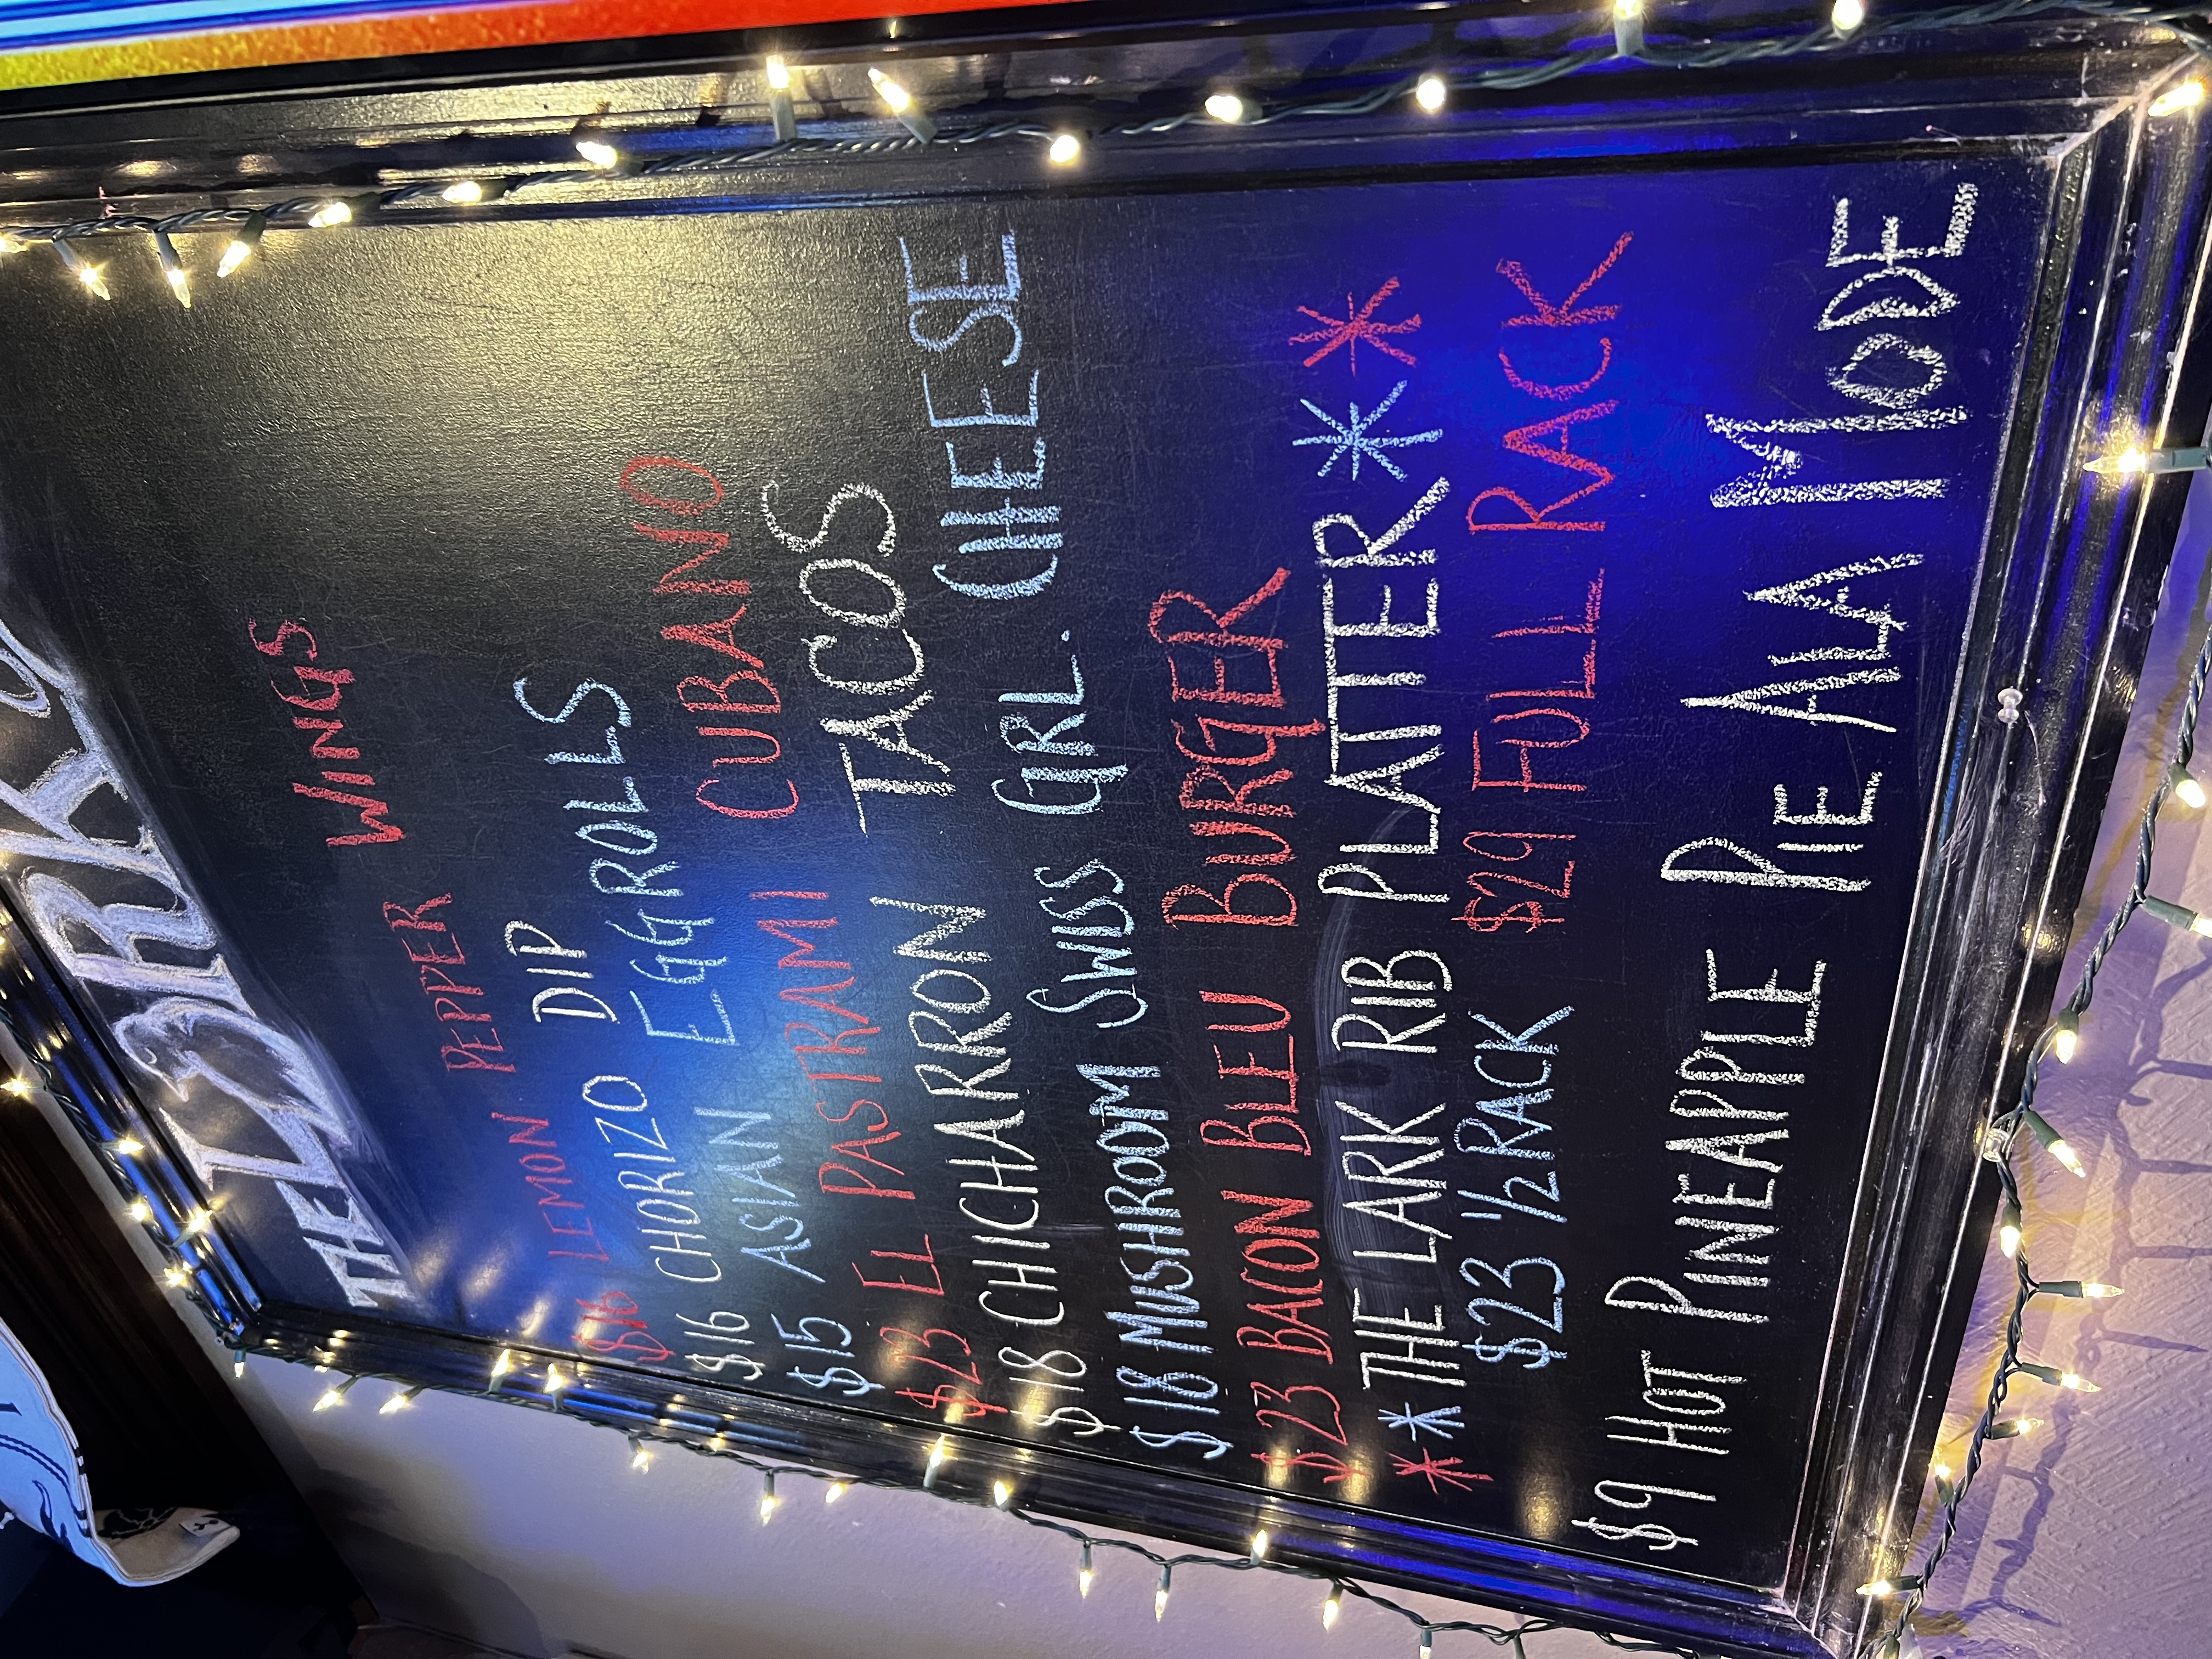 THE
$16 LEMON PEPPER WINGS
$16 CHORIZO DIP
$15 ASIAN EGGROLLS
$23 EL PASTRAMI CUBANO
$18 CHICHARRON TACOS
$18 MUSHROOM SWISS GRL. CHEESE
$23 BACON BLEU BURGER
**THE LARK RIB PLATTER**
$23 1/2 RACK $29 FULL RACK
$9 HOT PINEAPPLE PIE ALA MODE